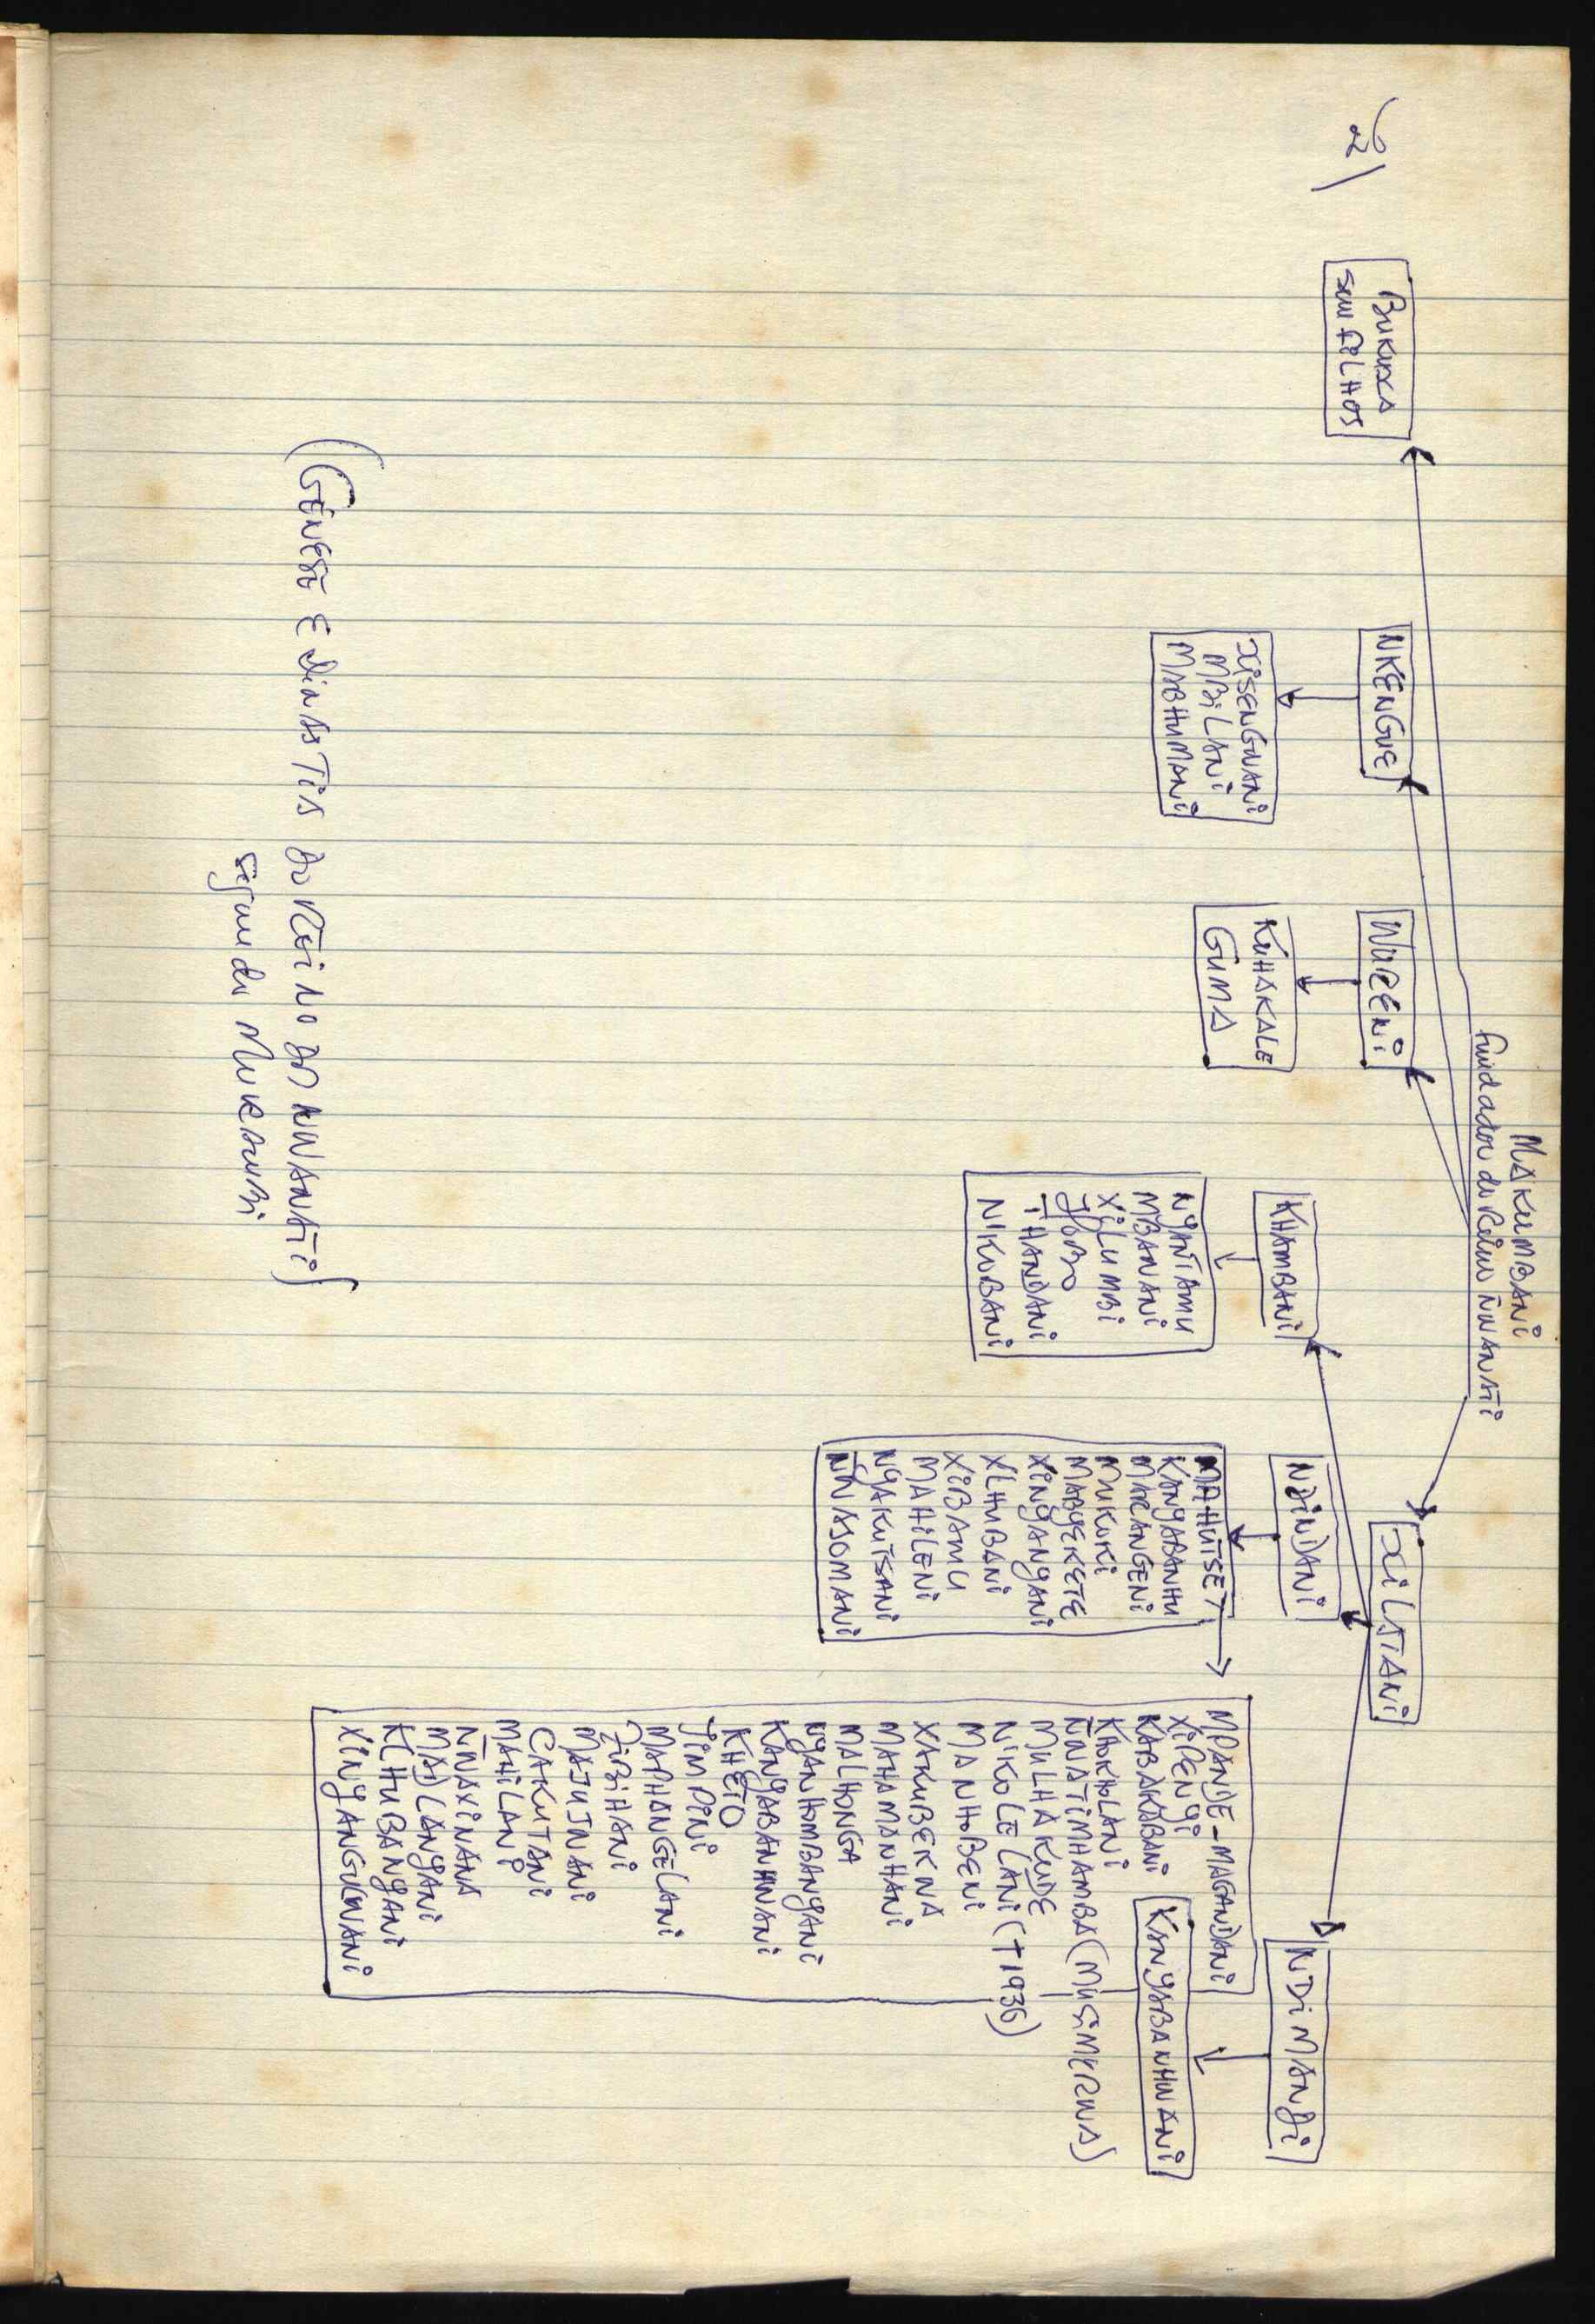 2)
MAKUMBANI
fundador do Reino ÑWANATI
BUKUXA
sem FILHOS
NKENGUE
XISENGWANI
MBILANI
MABHUMANI
WUZENI
KUHAKALE
GUMA
XILATANI
KHAMBANI
NYANTAMU
MBANANI
XILUMBI
JJOBO
THANDANI
NIKOBANI
NJINDANI
MAHUTSET
KANYABANHU
MARANGENI
MUKUKI
MABYEKETE
XINYANYANI
XLHUBANI
XIBAMU
MAHILENI
NYAKUTSANI
ÑWASOMANI
NDIMANJI
KANYABANHWANI
MPANDE-MAGANDANI
XIPENYI
KABAKABANI
KHOKHOLANI
ÑWATIMHAMBA (MUSIMERWA)
MULHAKUDE
NIKOLELANI (†1936)
MANHOBENI
XAKUBEKWA
MAHAMANHANI
MALHONGA
NYANHOMBANYANI
KANYABANHWANI
KHETO
JIMPINI
MAPHANGELANI
JIBIHANI
MAJUJWANI
CAKUTANI
MAHILANI
ÑWAXINANA
MADLANYANI
KLHUBANYANI
XINYANGUKWANI
(GÉNESE E DINASTIA do REINO dos ÑWANATI)
segundo MUKAMBI